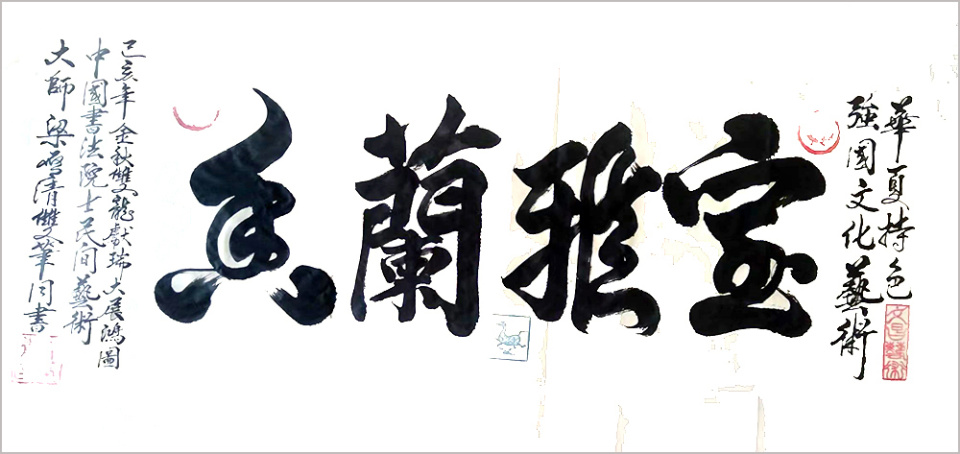 華夏持色
強國文化藝術
室雅蘭香
己亥年金秋雙龍獻瑞大展鴻圖
中國書法院士民间藝術
大師梁清雙筆同書